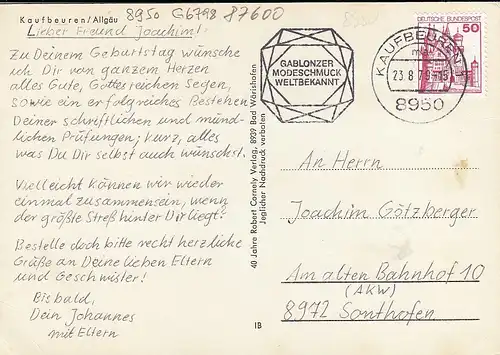 Kaufbeuren/Allgäu
8950 G6798 87600
Lieber Freund Joachim!
Zu Deinem Geburtstag wünsche
ich Dir von ganzem Herzen
alles Gute, Gottes reichen Segen,
sowie ein erfolgreiches Bestehen
Deiner schriftlichen und münd-
lichen Prüfungen; kurz, alles
was Du Dir selbst auch wünschst.
Vielleicht können wir wieder
einmal zusammensein, wenn
der größte Streß hinter Dir liegt.
Bestelle doch bitte recht herzliche
Grüße an Deine lieben Eltern
und Geschwister!
Bis bald,
Dein Johannes
mit Eltern
40 Jahre Robert Cornely Verlag, 8939 Bad Wörishofen
Jeglicher Nachdruck verboten
IB
GABLONZER
MODESCHMUCK
WELTBEKANNT
KAUFBEUREN 1
23.8.79-15
8950
DEUTSCHE BUNDESPOST
50
An Herrn
Joachim Götzberger
Am alten Bahnhof 10
(AKW)
8972 Sonthofen